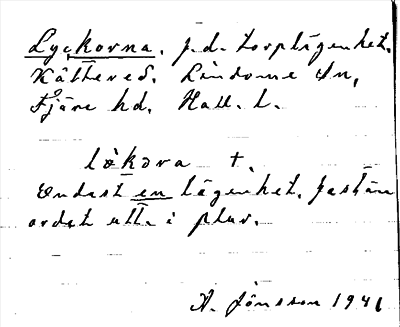 Lyckorna, f.d. torplägenhet.
Kåttered. Lindome sn,
Fjäre hd. Hall. l.
lö̀kơra †.
Endast en lägenhet, fastän
ordet utta i plur.
A. Jönsson 1941